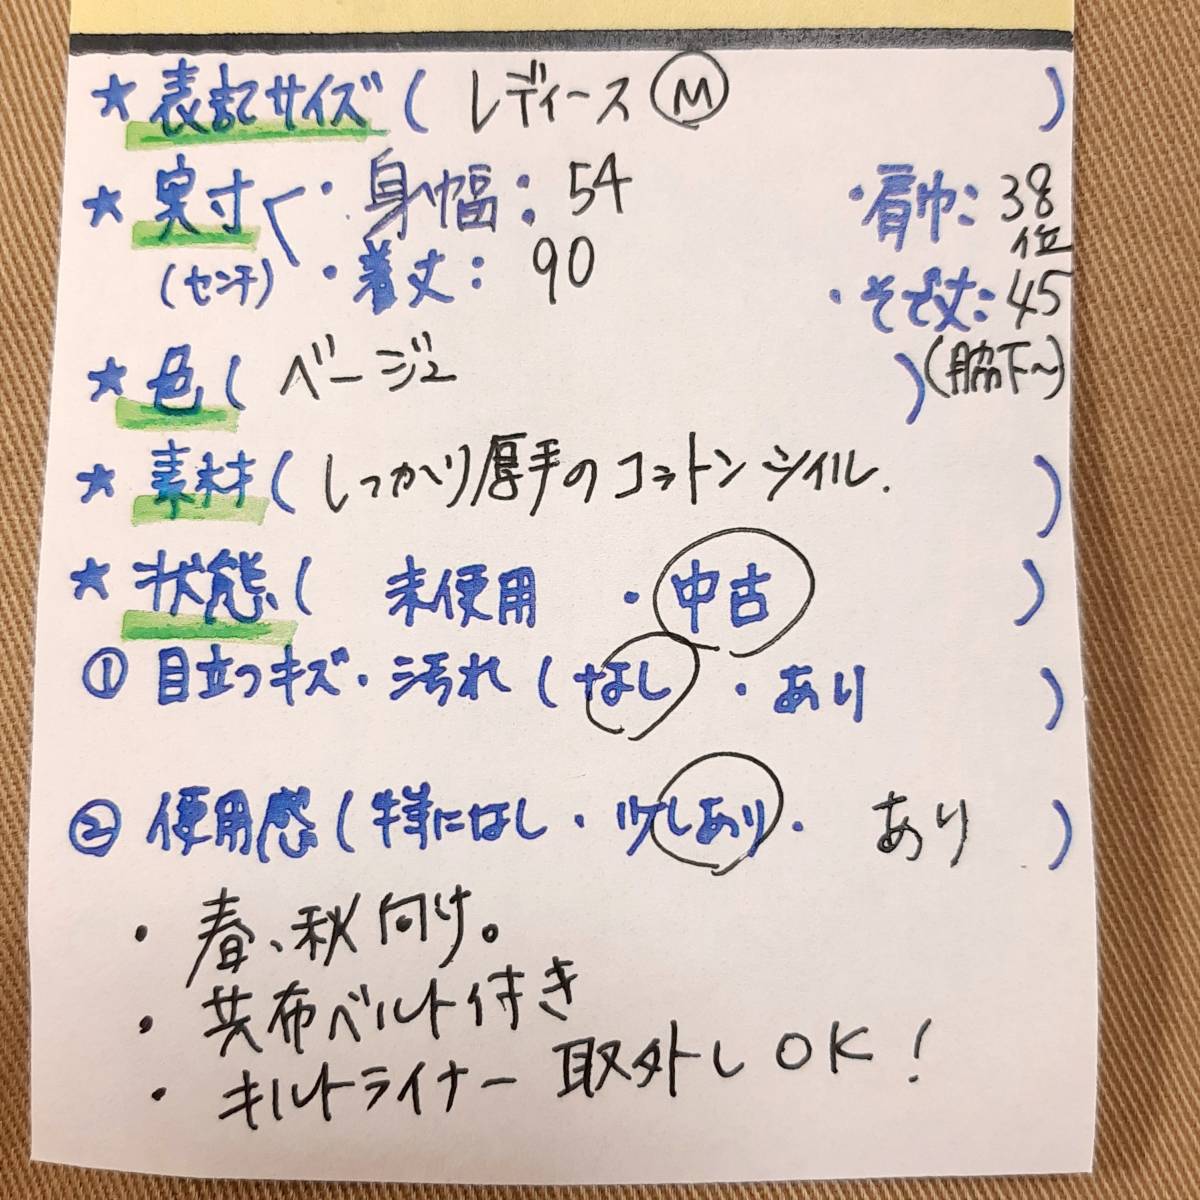 ★ 表記サイズ ( レディース Ⓜ )
★ 実寸 ・身幅: 54 ・肩巾: 38位
(センチ) ・着丈: 90 ・そで丈: 45
(脇下~)
★ 色 ( ベージュ )
★ 素材 ( しっかり厚手のコットンツイル. )
★ 状態 ( 未使用 ・ 中古 )
① 目立つキズ・汚れ ( なし ・ あり )
② 使用感 ( 特になし ・ 少しあり ・ あり )
・ 春、秋向け。
・ 共布ベルト付き
・ キルトライナー 取外し OK!